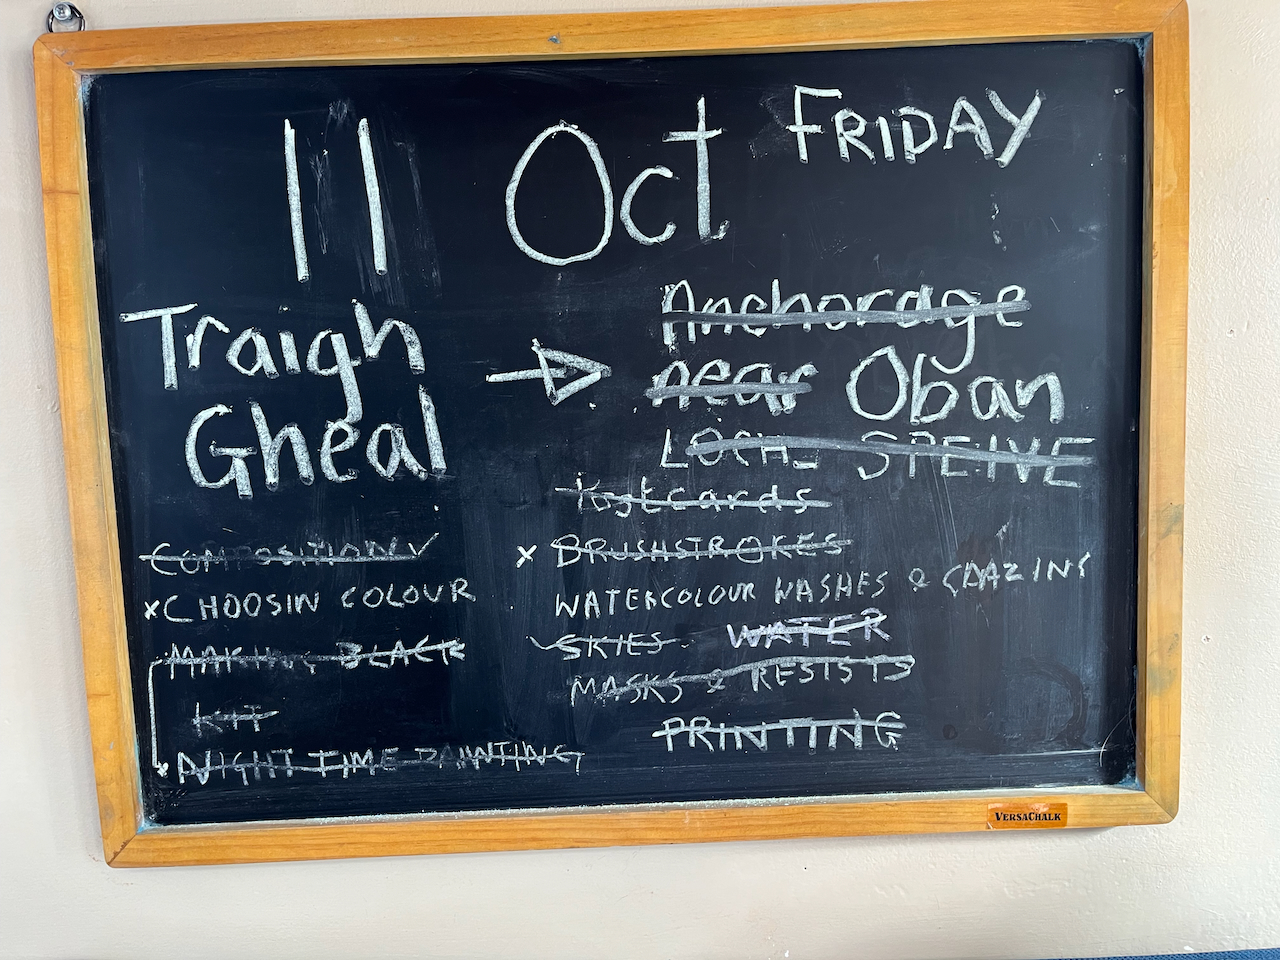 11 Oct FRIDAY
Traigh
Gheal
→ Anchorage
near Oban
LOCH SPEIVE
Postcards
COMPOSITION ✓
x CHOOSIN COLOUR
MAKING BLACK
KIT
x NIGHT TIME PAINTING
x BRUSHSTROKES
WATERCOLOUR WASHES & GLAZING
✓ SKIES WATER
MASKS & RESISTS
PRINTING
VERSACHALK